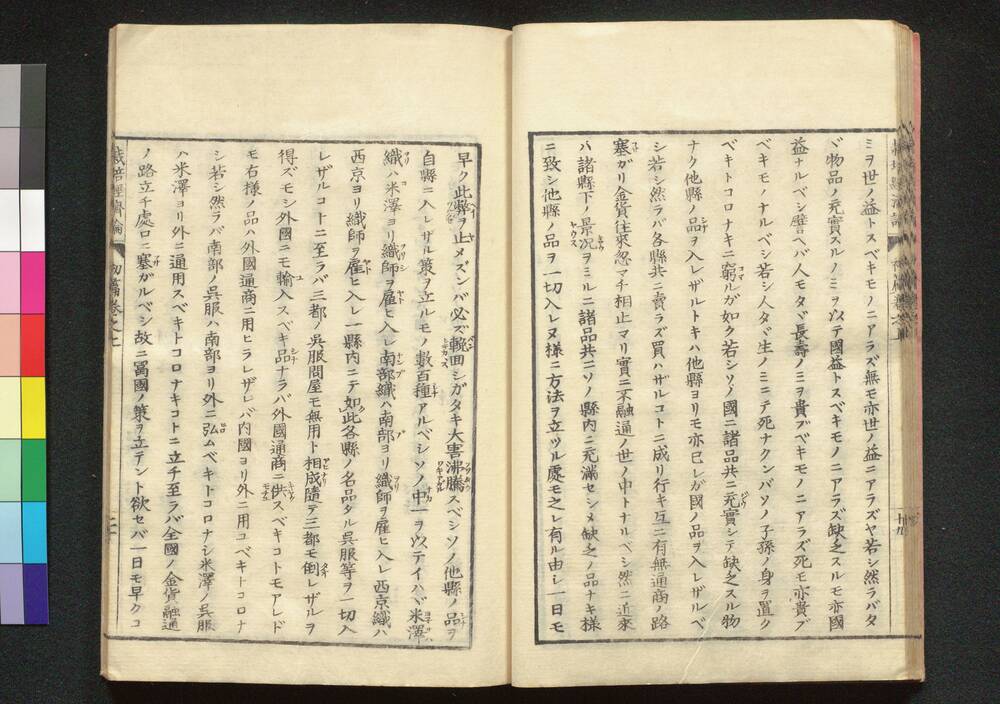 ミヲ世ノ益トスベキモノニアラズ無モ亦世ノ益ニアラズヤ若シ然ラバタ
ヾ物品ノ充實スルノミヲ以テ國益トスベキモノニアラズ缺乏スルモ亦國
益ナルベシ譬ヘバ人モタヾ長壽ノミヲ貴ブベキモノニアラズ死モ亦貴ブ
ベキモノナルベシ若シ人タヾ生ノミニテ死ナクンバソノ子孫ノ身ヲ置ク
ベキトコロナキニ窮ルガ如ク若シソノ國ニ諸品共ニ充實シテ缺乏スル物
ナク他縣ノ品ヲ入レザルトキハ他縣ヨリモ亦已レガ國ノ品ヲ入レザルベ
シ若シ然ラバ各縣共ニ賣ラズ買ハザルコトニ成リ行キ互ニ有無通商ノ路
塞ガリ金貨往來忽マチ相止マリ實ニ不融通ノ世ノ中トナルベシ然ニ近來
ハ諸縣下ノ景况ヲミルニ諸品共ニソノ縣内ニ充滿セシメ缺乏ノ品ナキ樣
ニ致シ他縣ノ品ヲ一切入レヌ樣ニ方法ヲ立ツル處モ之レ有ル由シ一日モ
十九
早ク此弊ヲ止メズンバ必ズ輓回シガタキ大害沸騰スベシソノ他縣ノ品ヲ
自縣ニ入レザル策ヲ立ルモノ數百種アルベシソノ中一ヲ以テイハヾ米澤
織ハ米澤ヨリ織師ヲ雇ヒ入レ南部織ハ南部ヨリ織師ヲ雇ヒ入レ西京織ハ
西京ヨリ織師ヲ雇ヒ入レ一縣内ニテ如此各縣ノ名品タル呉服等ヲ一切入
レザルコトニ至ラバ三都ノ呉服問屋モ無用ト相成隨テ三都モ倒レザルヲ
得ズモシ外國ニモ輸入スベキ品ナラバ外國通商ニ供スベキコトモアレド
モ右樣ノ品ハ外國通商ニ用ヒラレザレバ内國ヨリ外ニ用ユベキトコロナ
シ若シ然ラバ南部ノ呉服ハ南部ヨリ外ニ弘ムベキトコロナシ米澤ノ呉服
ハ米澤ヨリ外ニ通用スベキトコロナキコトニ立チ至ラバ全國ノ金貨融通
ノ路立チ處ロニ塞ガルベシ故ニ冨國ノ策ヲ立テント欲セバ一日モ早クコ
栽培經濟論
初篇卷之上